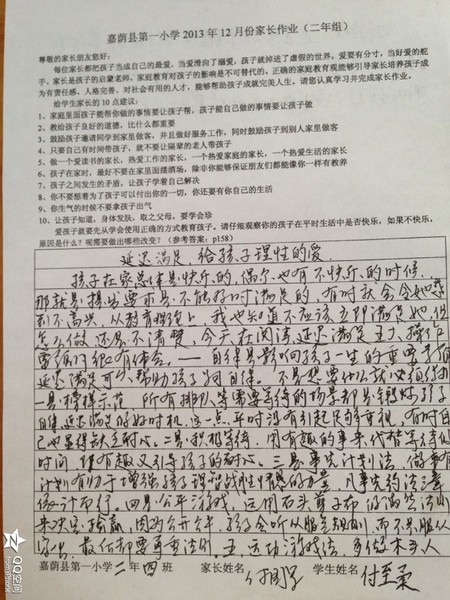 嘉荫县第一小学2013年12月份家长作业（二年组）
尊敬的家长朋友您好：
每位家长都把孩子当成自己的最爱，当爱滑向了溺爱，孩子就掉进了虚假的世界，爱要有分寸，当好爱的舵
手。家长是孩子的启蒙老师，家庭教育对孩子的影响是不可替代的，正确的家庭教育观能够引导家长培养孩子成
为有责任感、人格完善、对社会有用的人才，能够帮助孩子成就完美人生。请您认真学习并完成家长作业。
给学生家长的10点建议：
1、家庭里面孩子能帮你做的事情要让孩子帮，孩子能自己做的事情要让孩子做
2、教给孩子良好的道德，比什么都重要
3、鼓励孩子邀请同学到家里做客，并且做好服务工作，同时鼓励孩子到别人家里做客
4、只要自己有时间带孩子，就不要让隔辈的老人带孩子
5、做一个爱读书的家长，热爱工作的家长，一个热爱家庭的家长，一个热爱生活的家长
6、孩子在家时，最好不要在家里面摆酒场，除非你能够保证朋友们都能像你一样有教养
7、孩子之间发生的矛盾，让孩子学着自己解决
8、你不要想着为了孩子可以付出你的一切，你还要有你自己的生活
9、你生气的时候不要拿孩子出气
10、让孩子知道，身体发肤，取之父母，要学会珍
爱孩子就要先从学会使用正确的方式教育孩子。请仔细观察你的孩子在平时生活中是否快乐，如果不快乐，
原因是什么？呢需要做出哪些改变？（参考答案：p158）
延迟满足，给孩子理性的爱
孩子在家总体是快乐的，偶尔也有不快乐的时候，
那就是提出要求是不能得到满足的，有时就会令她感
到不高兴，从教育理论上，我也知道不应该立即满足她，但
怎么做还是不清楚，今天在阅读延迟满足
——自律是影响孩子一生的重要
延迟满足可以帮助孩子自律。不是想要什么就必须得到
一是榜样示范，所有排队等需要等待的场景都是锻炼孩子
自律延迟满足的好时机，这一点平时没有引起足够重视，有时自
己也显得缺乏耐心。二是积极等待，用有趣的事来代替等待的
时间，既有趣又引导孩子的耐心。三是事先计划法，做事有
计划有助于增强孩子理智战胜情感的力量，凡事先约法三章
依计而行，四是公平游戏，运用石头剪子布的偶然法则
来决定输赢，因为公开公平，孩子会听从服
最任却要再重读时。五、运动游戏法，多做木头人
嘉荫县第一小学二年四班 家长姓名 学生姓名 付至柔
QQ空间